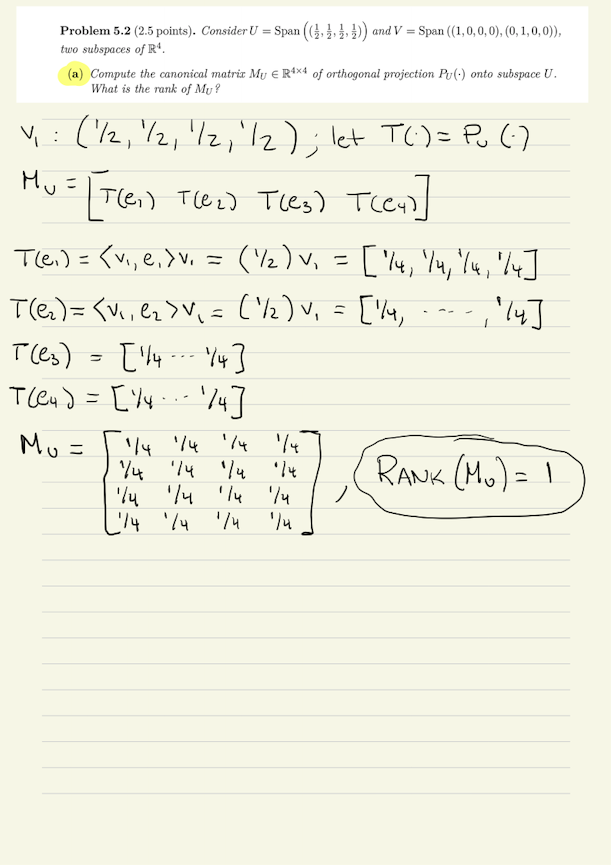 Problem 5.2 (2.5 points). Consider U = Span ((½, ½, ½, ½)) and V = Span ((1, 0, 0, 0), (0, 1, 0, 0)),
two subspaces of ℝ⁴.
(a) Compute the canonical matrix M_U ∈ ℝ^{4×4} of orthogonal projection P_U(·) onto subspace U.
What is the rank of M_U?
v₁ : (1/2, 1/2, 1/2, 1/2) ; let T(·) = P_U (·)
M_U = [T(e₁) T(e₂) T(e₃) T(e₄)]
T(e₁) = <v₁, e₁>v₁ = (1/2) v₁ = [1/4, 1/4, 1/4, 1/4]
T(e₂) = <v₁, e₂>v₁ = (1/2) v₁ = [1/4, ----, 1/4]
T(e₃) = [1/4 --- 1/4]
T(e₄) = [1/4 --- 1/4]
M_U = [1/4 1/4 1/4 1/4
1/4 1/4 1/4 1/4
1/4 1/4 1/4 1/4
1/4 1/4 1/4 1/4] , RANK (M_U) = 1